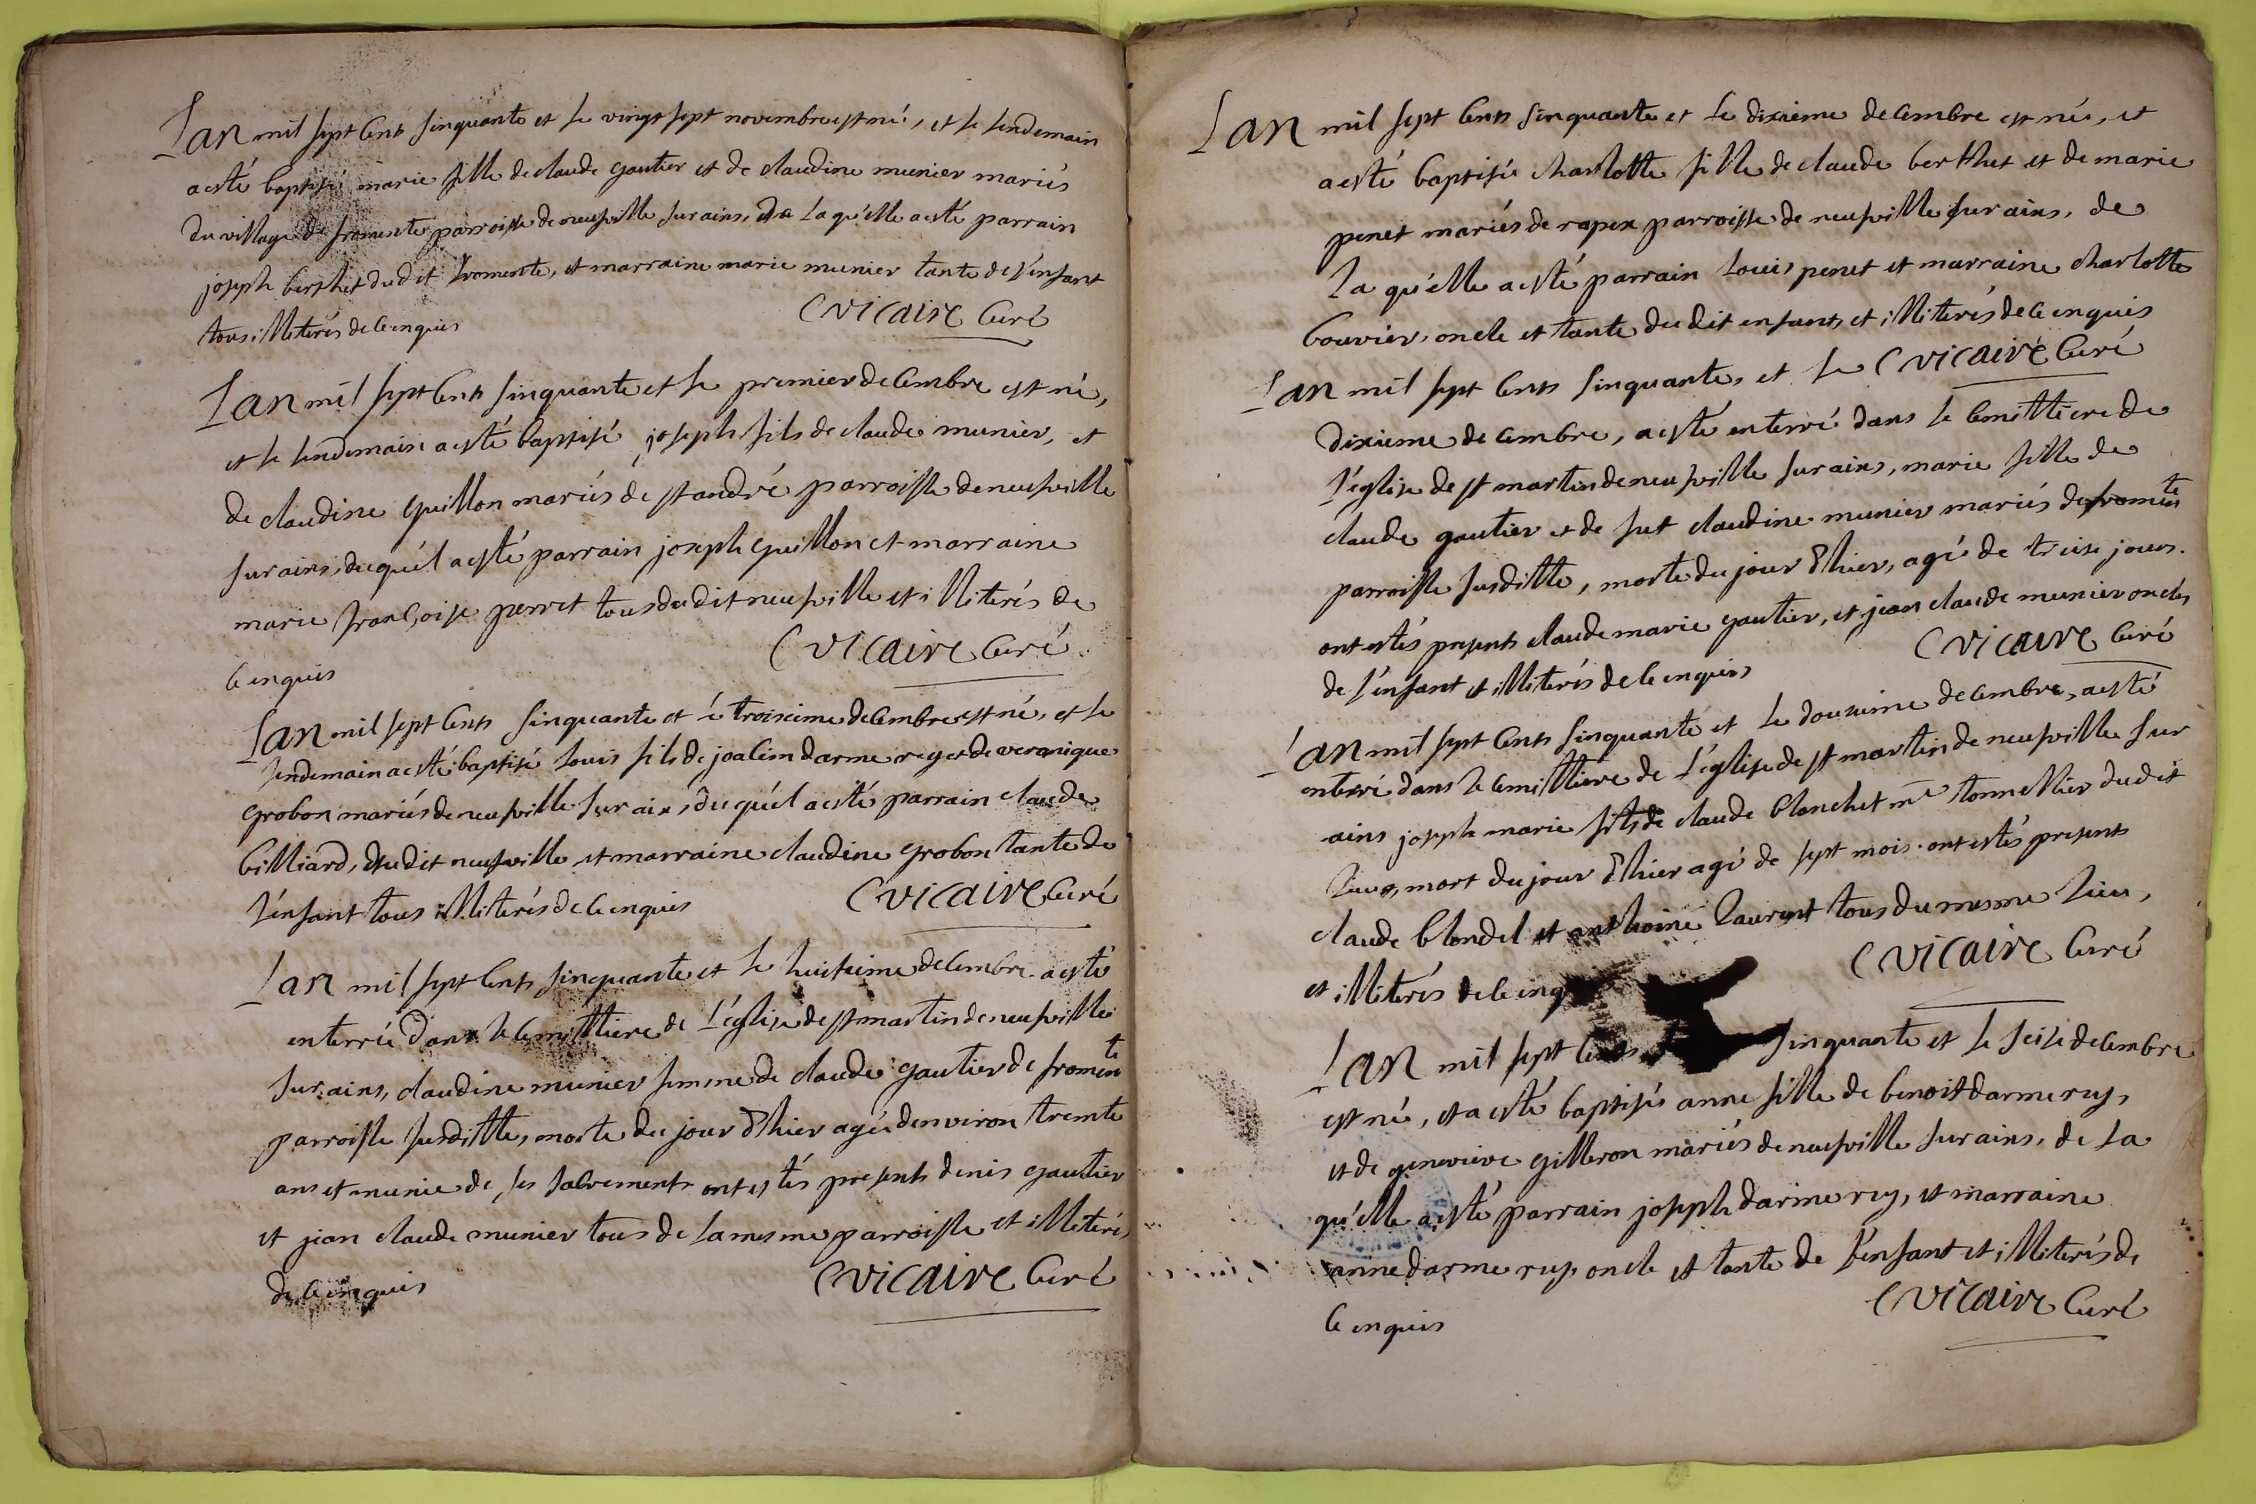 Lan mil sept cents sinquante et le vingt sept novembre est né, et le lendemain
a esté baptisé marie fille de claude gautier et de claudine munier mariés
du village de fromente parroisse de neufville sur ains, de la qu'elle a esté parrain
joseph berthet dudit fromente, et marraine marie munier tante de l'enfant
tous illiterés de ce enquis
C vicaire Curé
Lan mil sept cents sinquante et le premier decembre est né,
et le lendemain a esté baptisé joseph fils de claude munier, et
de claudine guillon mariés de st andré parroisse de neufville
sur ains, duquél a esté parrain joseph guillon et marraine
marie francoise perret tous dudit neufville et illiterés de
ce enquis
C vicaire Curé
Lan mil sept cents sinquante et le troisieme decembre est né, et le
lendemain a esté baptisé louis fils de joacim darmerey et de veronique
grobon mariés de neufville sur ains duquél a esté parrain claude
billiard, dudit neufville et marraine claudine grobon tante de
l'enfant tous illiterés de ce enquis
C vicaire Curé
Lan mil sept cents sinquante et le huitieme decembre a esté
enterrée dans le cemittiere de l'église de st martin de neufville
sur ains, claudine munier femme de claude gautier de fromente
parroisse susditte, morte du jour d'hier agée denviron trente
ans et munie de ses sacrements ont estés presents denis gautier
et jean claude munier tous de la mesme parroisse et illiterés
de ce enquis
C vicaire Curé
Lan mil sept cents sinquante et le dixième decembre est née, et
a esté baptisée charlotte fille de claude berthet et de marie
penet mariés de rapex parroisse de neufville sur ains, de
la qu'elle a esté parrain louis penet et marraine charlotte
bouvier, oncle et tante du dit enfant, et illiterés de ce enquis
C vicaire Curé
Lan mil sept cents sinquante, et le
dixieme decembre, a esté enterré dans le cemittiere de
l'église de st martin de neufville sur ains, marie fille de
claude gautier et de fut claudine munier mariés de fromente
parroisse susditte, morte du jour d'hier, agé de treise jours.
ont estés presents claude marie gautier, et jean claude munier oncles
de l'enfant et illiterés de ce enquis
C vicaire Curé
Lan mil sept cents sinquante et le douzieme decembre, a esté
enterré dans le cemittiere de l'église de st martin de neufville sur
ains joseph marie fils de claude blanchet me tonnellier dudit
lieu, mort du jour d'hier agé de sept mois. ont estés presents
claude blondel et anthoine laurent tous du mesme lieu,
et illiterés de ce enq
C vicaire Curé
Lan mil sept cents sinquante et le seise decembre
est né, et a esté baptisée anne fille de benoist darmerey,
et de geneviéve gilleron mariés de neufville sur ains, de la
qu'elle a esté parrain joseph darmerey, et marraine
anne darmerey oncle et tante de l'enfant et illiterés de
ce enquis
C vicaire Curé